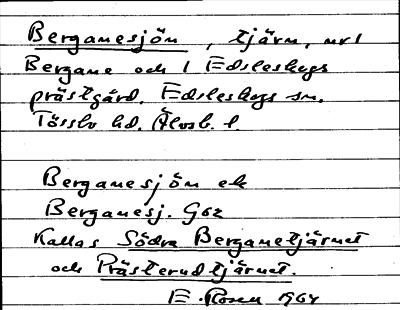 Berganesjön, tjärn, nv1
Bergane och 1 Edsleskogs
prästgård. Edsleskogs sn.
Tössbo hd. Älvsb. l.
Berganesjön ek
Berganesj. G62
Kallas Södra Berganetjärnet
och Prästerudtjärnet.
E. Rosell 1964